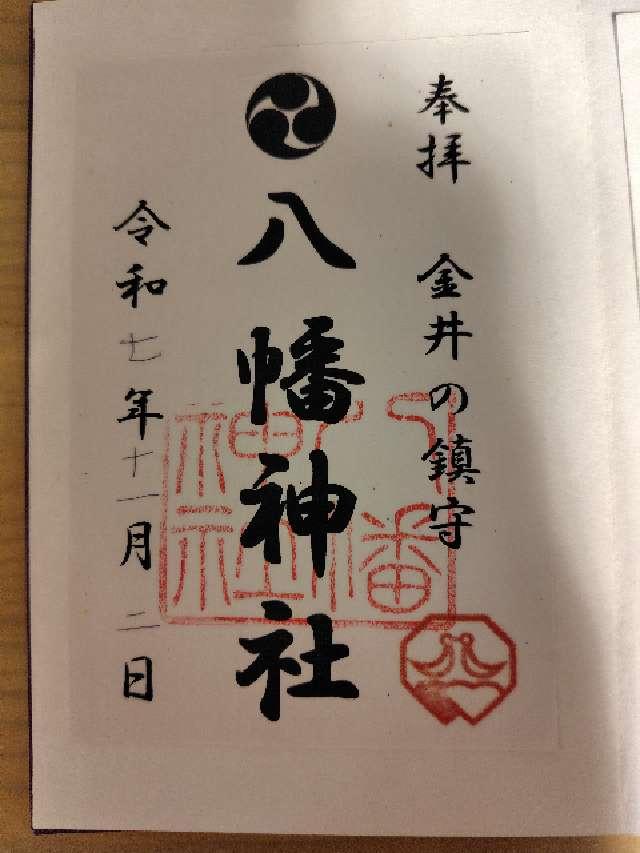 奉拝 金井の鎮守
八幡神社
令和七年十一月二日
八幡神社